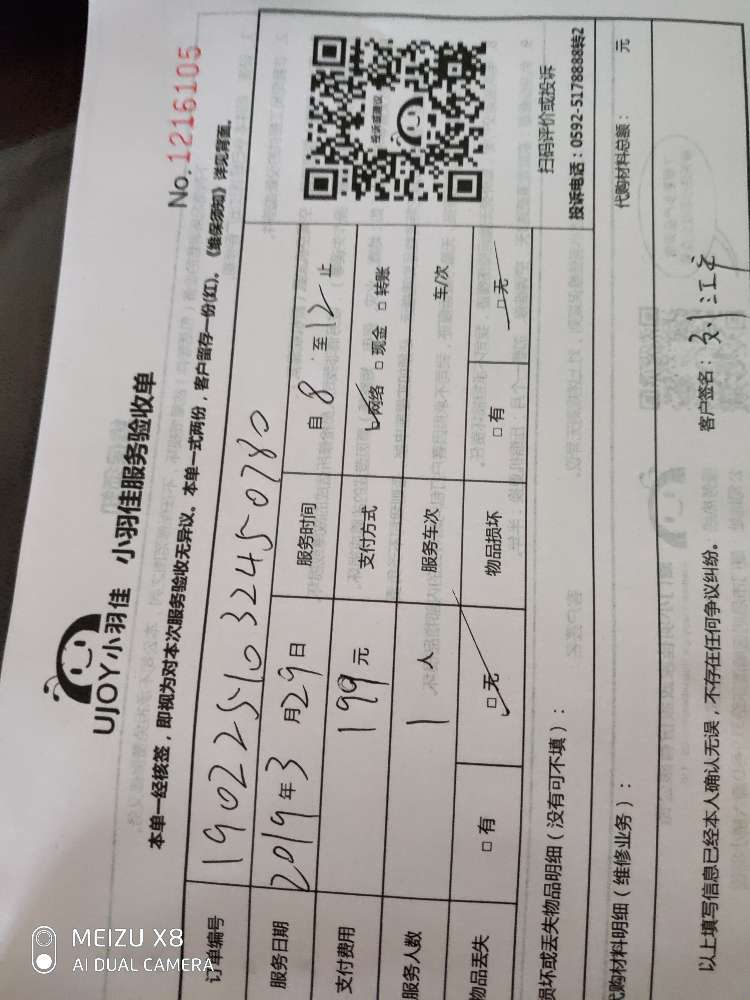 UJOY小羽佳 小羽佳服务验收单
No.1216105
本单一经核签，即视为对本次服务验收无异议。本单一式两份，客户留存一份(红)。《维保须知》详见背面。
订单编号 190225103245 0780
服务日期 2019年3月29日 服务时间 自8:至12止
支付费用 199元 支付方式 网络 □现金 □转账
服务人数 1人 服务车次 车/次
物品丢失 □有 □无 物品损坏 □有 □无
投诉或建议
扫码评价或投诉
投诉电话：0592-5178888转2
损坏或丢失物品明细（没有可不填）：
代购材料明细（维修业务）： 代购材料总额： 元
以上填写信息已经本人确认无误，不存在任何争议纠纷。 客户签名：刘江
MEIZU X8
AI DUAL CAMERA